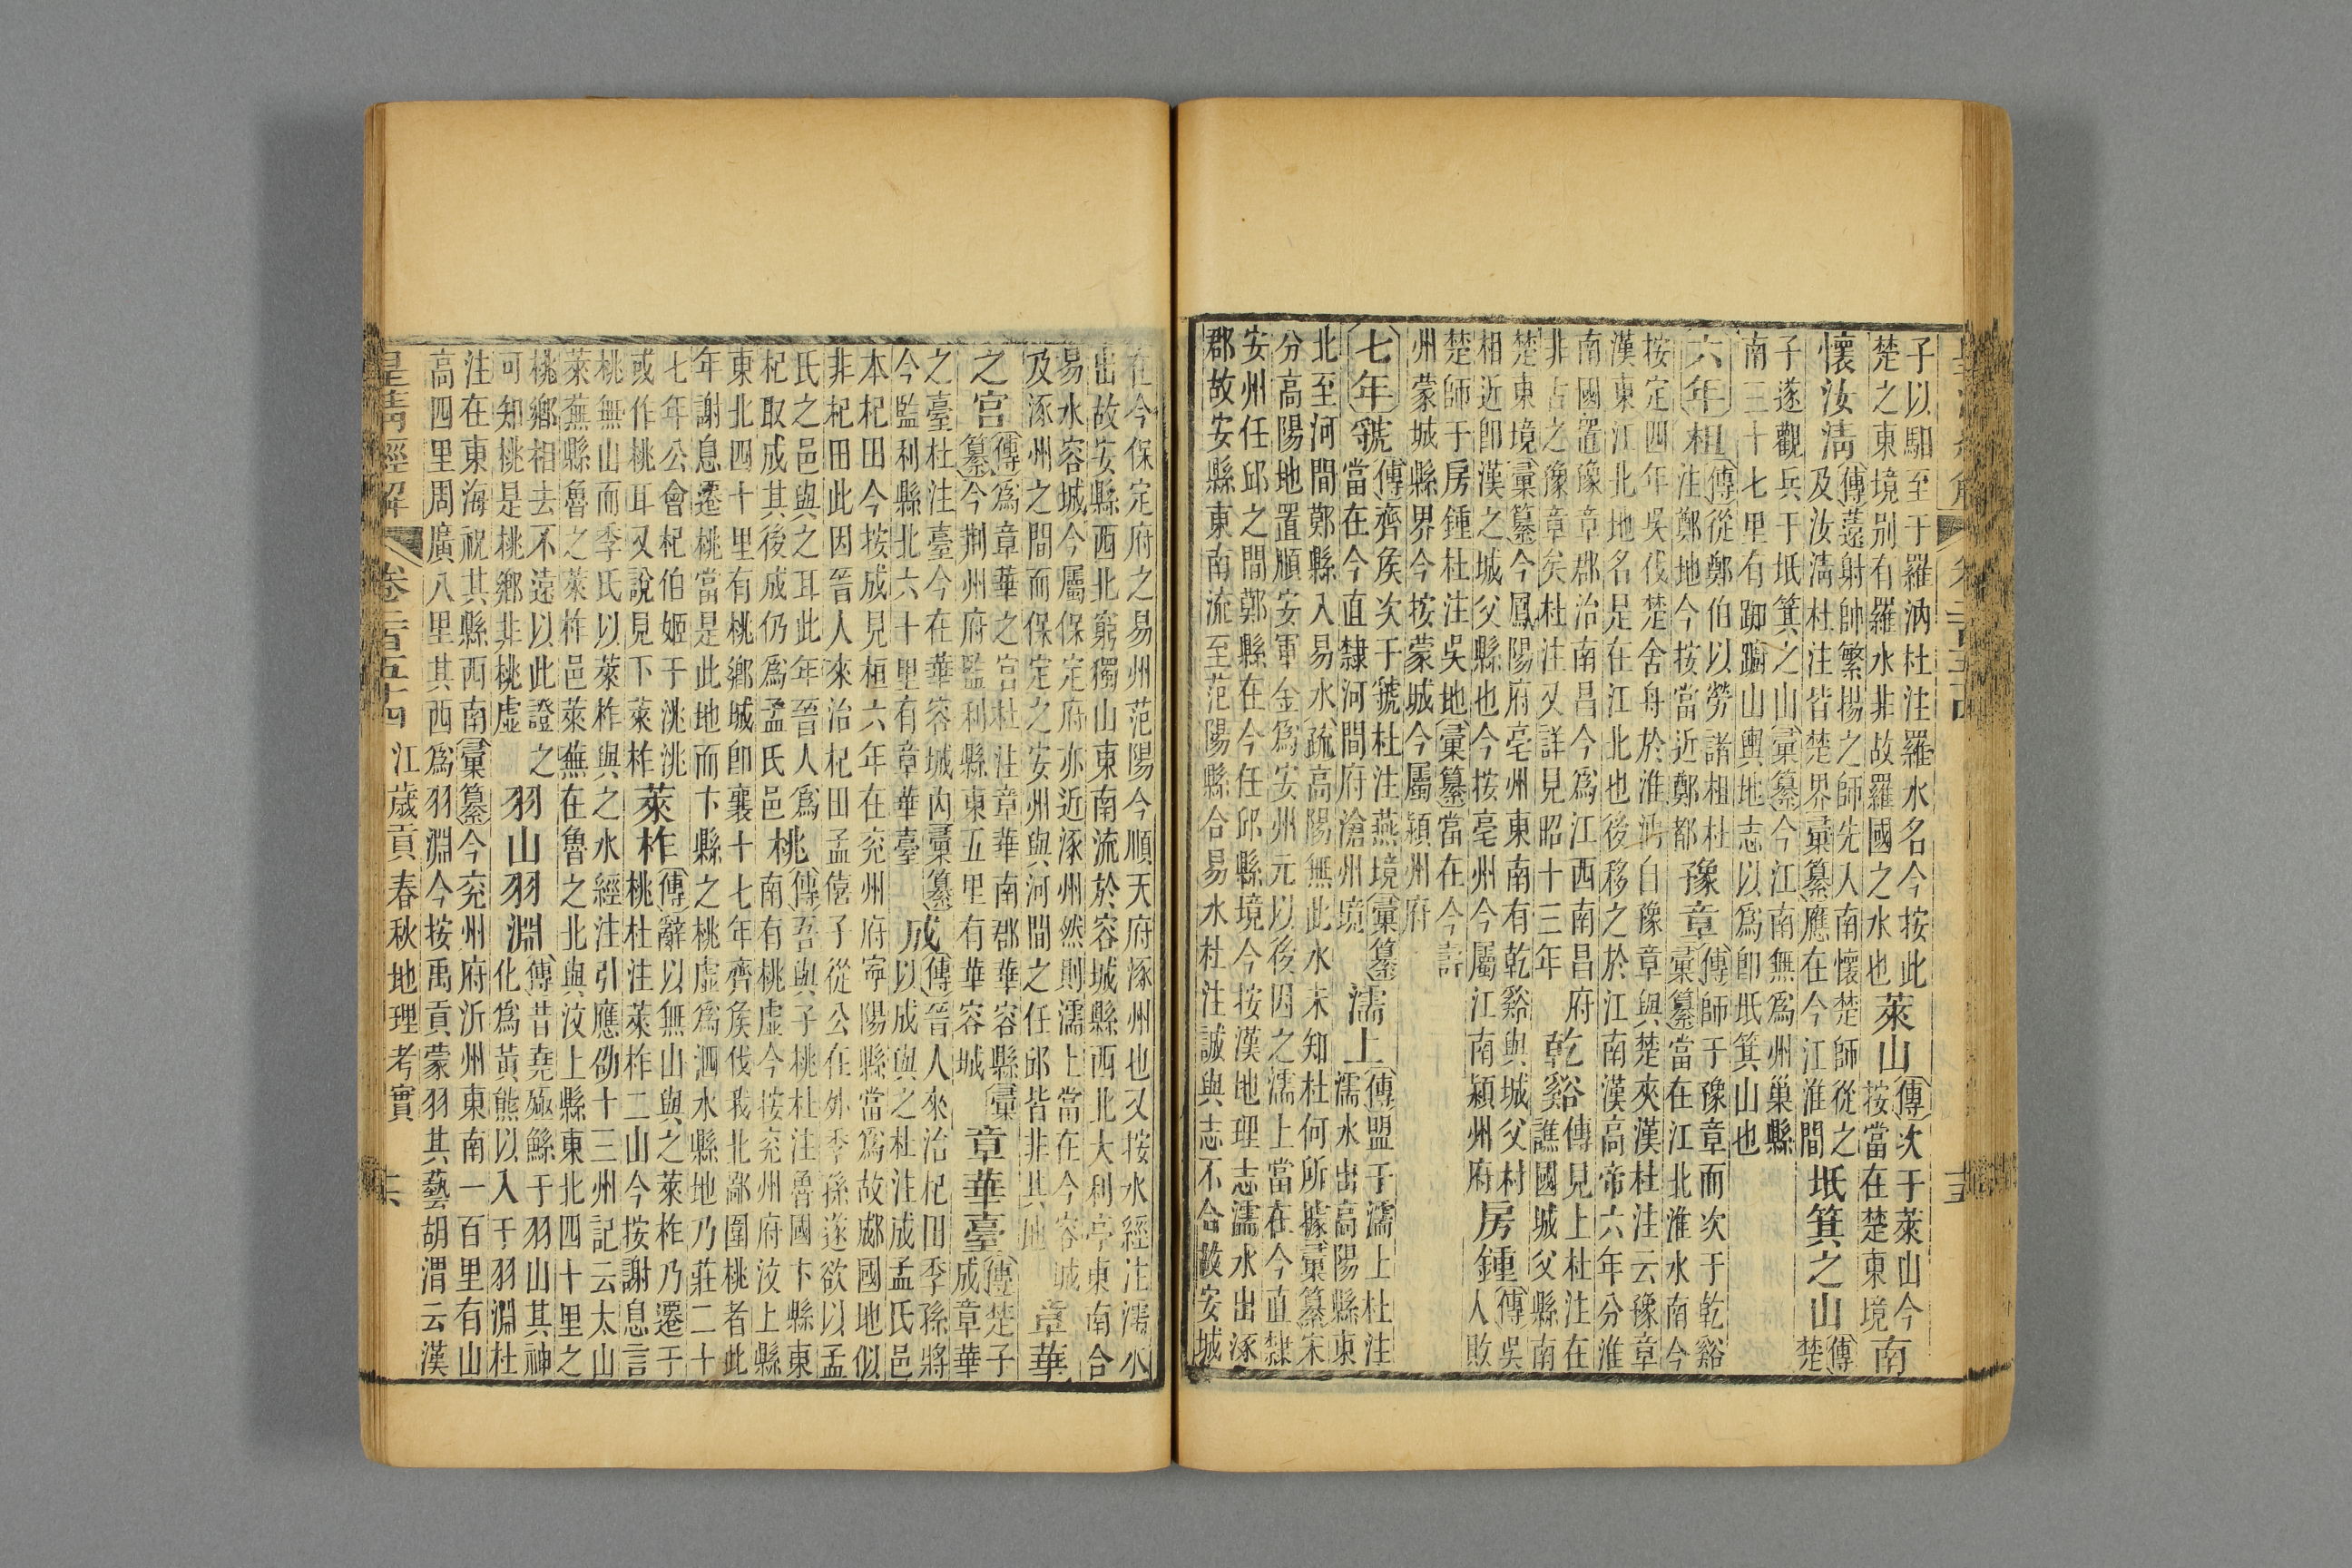 子以馹至于羅汭杜注羅水名今按此
楚之東境別有羅水非故羅國之水也
萊山
傳次于萊山今
按當在楚東境
南
懷汝清
傳薳射帥繁揚之師先入南懷楚師從之
及汝清杜注皆楚界彙纂應在今江淮間
坻箕之山
傳
楚
子遂觀兵于坻箕之山彙纂今江南無爲州巢縣
南三十七里有踟躕山輿地志以爲卽坻箕山也
六年柤
傳從鄭伯以勞諸柤杜
注鄭地今按當近鄭都
豫章
傳師于豫章而次于乾谿
彙纂當在江北淮水南今
按定四年吳伐楚舍舟於淮汭自豫章與楚夾漢杜注云豫章
漢東江北地名是在江北也後移之於江南漢高帝六年分淮
南國置豫章郡治南昌今爲江西南昌府
非古之豫章矣杜注又詳見昭十三年
乾谿
傳見上杜注在
譙國城父縣南
楚東境彙纂今鳳陽府亳州東南有乾谿與城父村
相近卽漢之城父縣也今按亳州今屬江南潁州府
房鍾
傳吳
人敗
楚師于房鍾杜注吳地彙纂當在今許
州蒙城縣界今按蒙城今屬潁州府
七年虢
傳齊侯次于虢杜注燕境彙纂
當在今直隸河間府滄州境
濡上
傳盟子濡上杜注
濡水出高陽縣東
北至河間鄚縣入易水疏高陽無此水未知杜何所據彙纂宋
分高陽地置順安軍金爲安州元以後因之濡上當在今直隸
安州任邱之間鄚縣在今任邱縣境今按漢地理志濡水出涿
郡故安縣東南流至范陽縣合易水杜注誠與志不合故安城
在今保定府之易州范陽今順天府涿州也又按水經注濡水
出故安縣西北窮獨山東南流於容城縣西北大利亭東南合
易水容城今屬保定府亦近涿州然則濡上當在今容城
及涿州之間而保定之安州與河間之任邱皆非其地
章華
之宮
傳爲章華之宮杜注章華南郡華容縣彙
纂今荆州府監利縣東五里有華容城
章華臺
傳楚子
成章華
之臺杜注臺今在華容城內彙纂
今監利縣北六十里有章華臺
成
傳晉人來治杞田季孫將
以成與之杜注成孟氏邑
本杞田今按成見桓六年在兗州府寧陽縣當爲故郕國地似
非杞田此因晉人來治杞田孟僖子從公在外季孫遂欲以孟
氏之邑與之耳此年晉人爲
杞取成其後成仍爲孟氏邑
桃
傳吾與子桃杜注魯國卞縣東
南有桃虛今按兗州府汶上縣
東北四十里有桃鄉城卽襄十七年齊侯伐我北鄙圍桃者此
年謝息遷桃當是此地而卞縣之桃虛爲泗水縣地乃莊二十
七年公會杞伯姬于洮洮
或作桃耳又說見下萊柞
萊柞
傳辭以無山與之萊柞乃遷于
桃杜注萊柞二山今按謝息言
桃無山而季氏以萊柞與之水經注引應劭十三州記云太山
萊蕪縣魯之萊柞邑萊蕪在魯之北與汶上縣東北四十里之
桃鄉相去不遠以此證之
可知桃是桃鄉非桃虛
羽山羽淵
傳昔堯殛鯀于羽山其神
化爲黃熊以入于羽淵杜
注在東海祝其縣西南彙纂今兗州府沂州東南一百里有山
高四里周廣八里其西爲羽淵今按禹貢蒙羽其藝胡渭云漢
皇清經解 卷二百五十四 江歲貢春秋地理考實